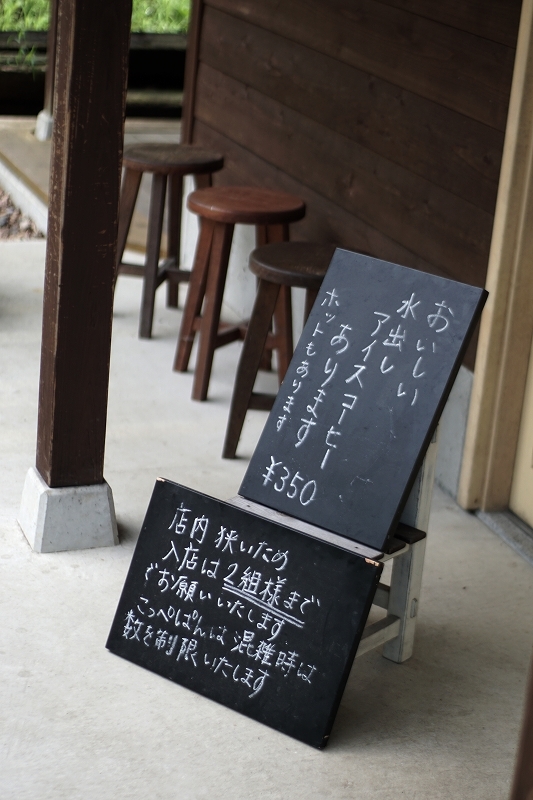 おいしい
水出し
アイスコーヒー
あります
ホットもあります
¥350
店内 狭いため
入店は2組様まで
でお願いいたします
こっぺぱんは 混雑時は
数を制限いたします